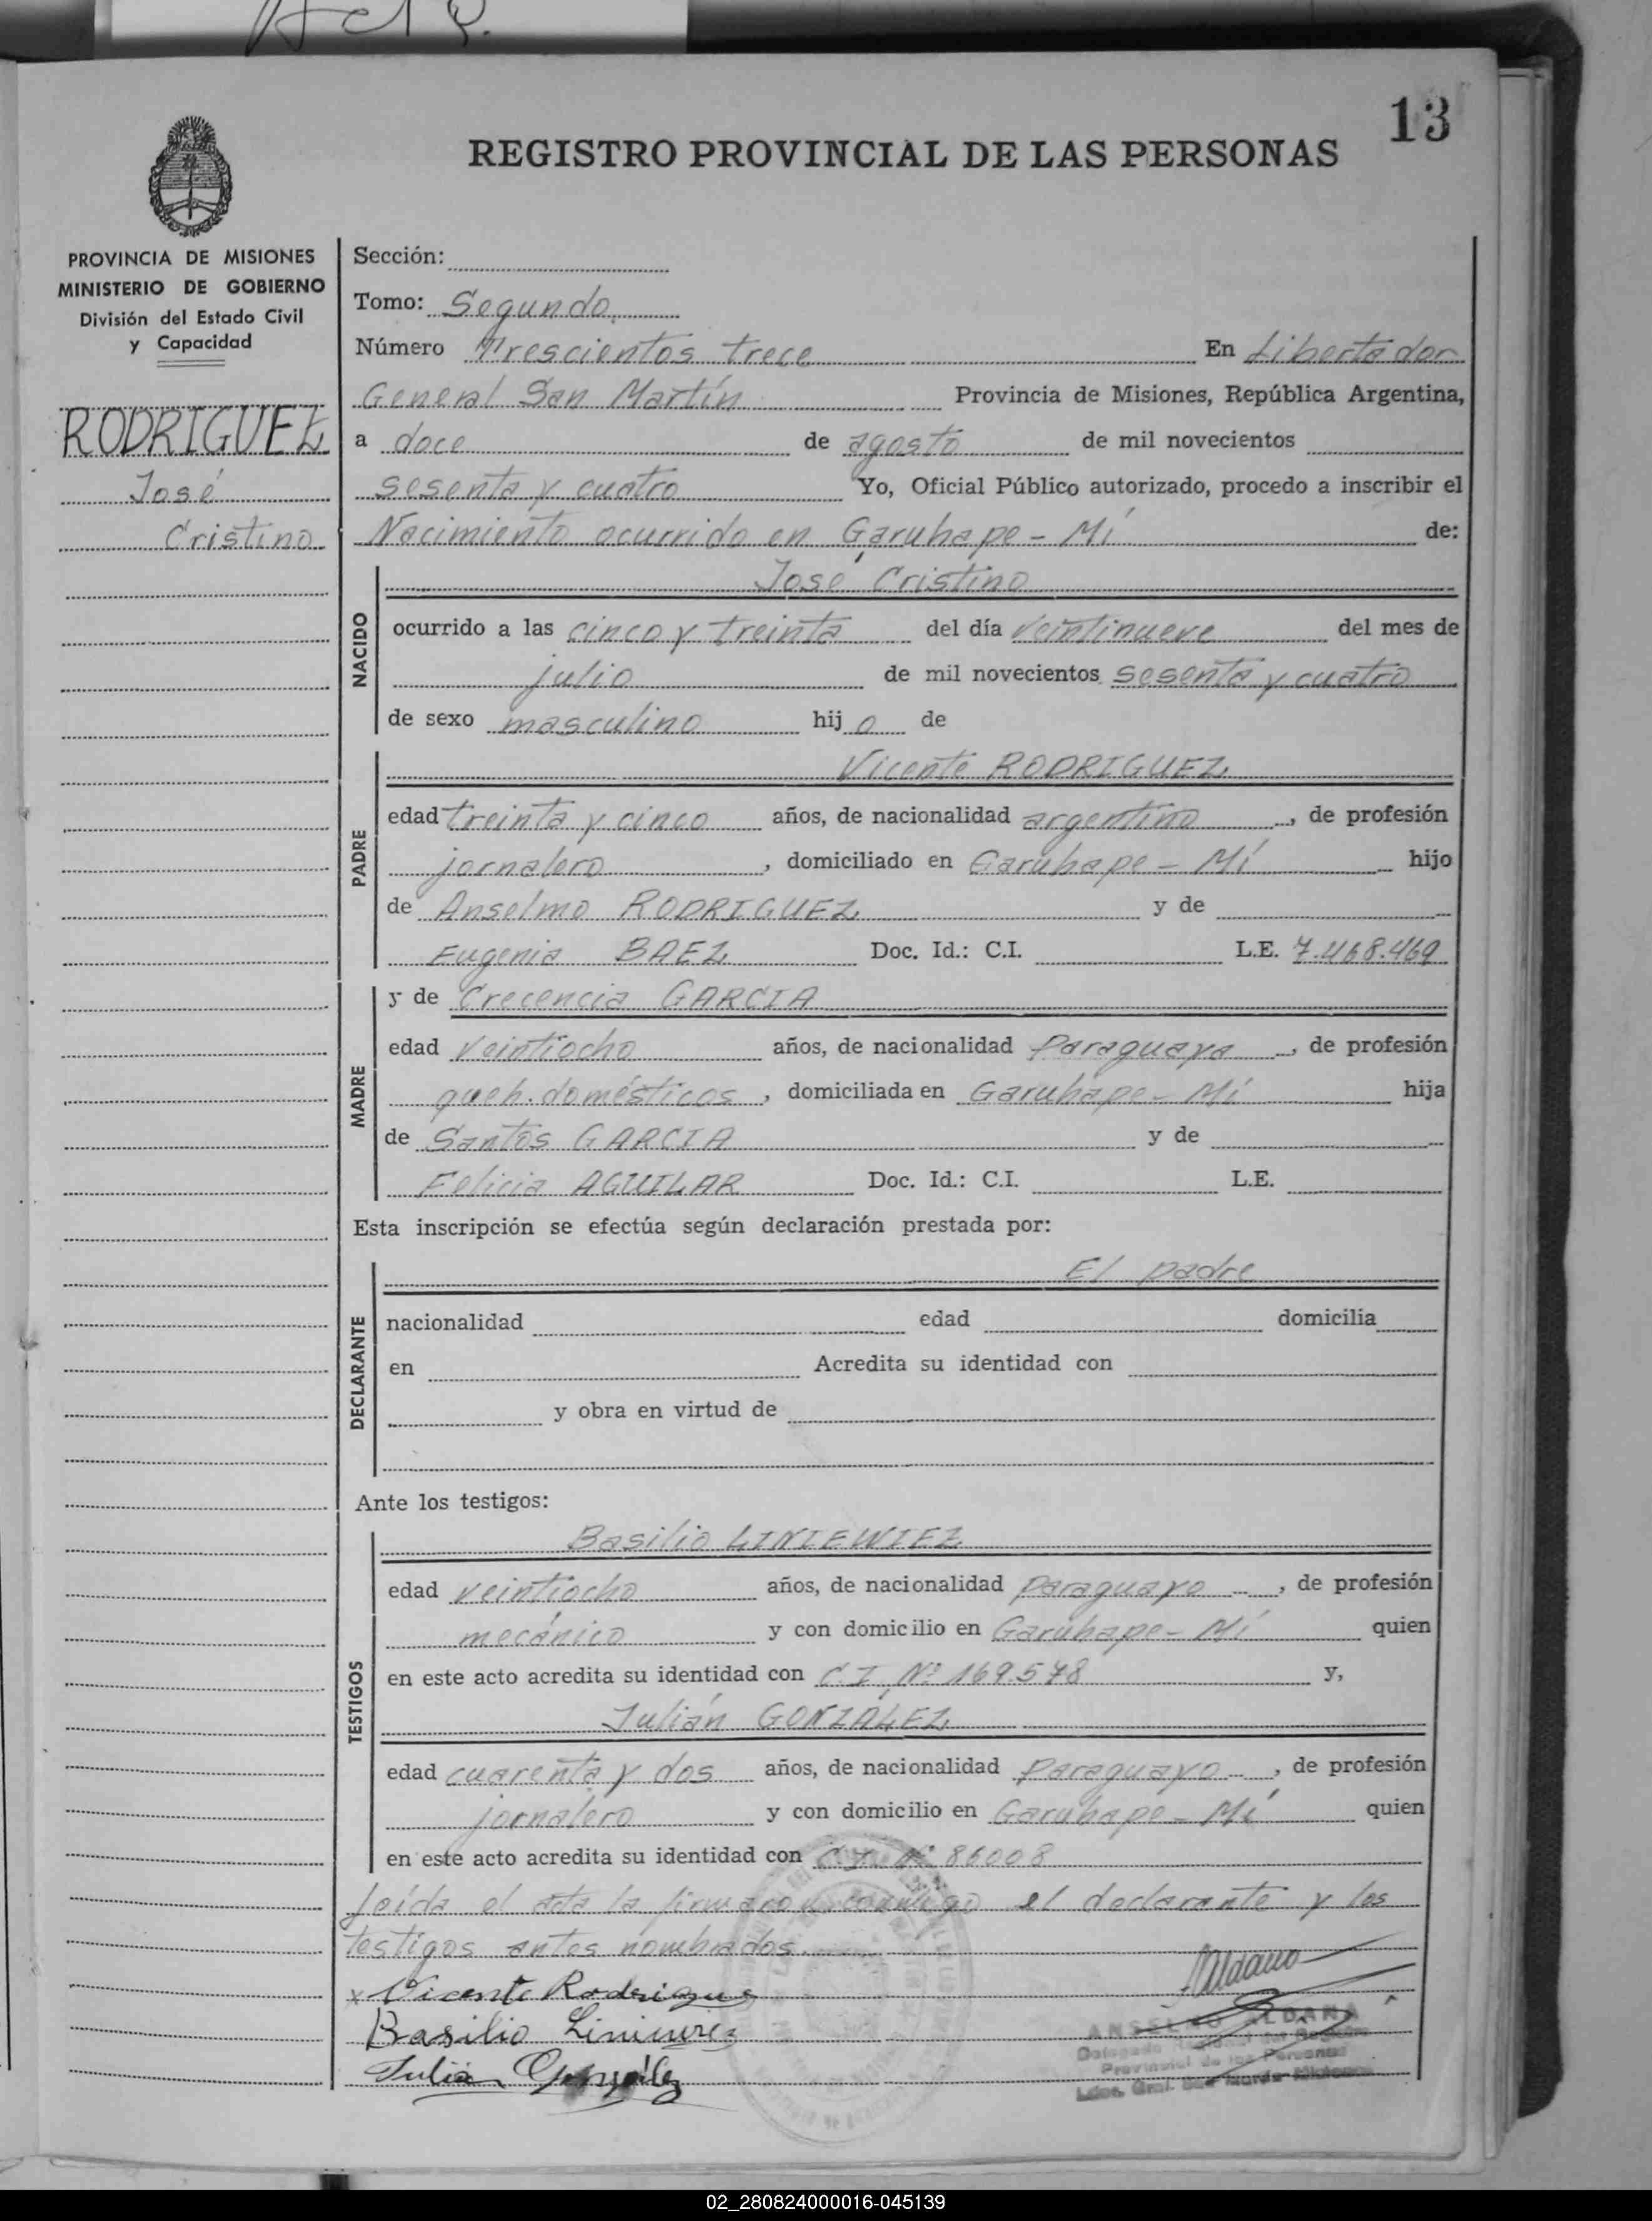 Acta.
13
REGISTRO PROVINCIAL DE LAS PERSONAS
PROVINCIA DE MISIONES
MINISTERIO DE GOBIERNO
División del Estado Civil
y Capacidad
RODRIGUEZ
José
Cristino
Sección:
Tomo: Segundo
Número Trescientos trece En Libertador
General San Martín Provincia de Misiones, República Argentina,
a doce de agosto de mil novecientos
sesenta y cuatro Yo, Oficial Público autorizado, procedo a inscribir el
Nacimiento ocurrido en Garuhape - Mí de:
NACIDO
José Cristino
ocurrido a las cinco y treinta del día veintinueve del mes de
julio de mil novecientos sesenta y cuatro
de sexo masculino hijo de
PADRE
Vicente RODRIGUEZ
edad treinta y cinco años, de nacionalidad argentino, de profesión
jornalero, domiciliado en Garuhape - Mí hijo
de Anselmo RODRIGUEZ y de
Eugenia BAEZ Doc. Id.: C.I. L.E. 7.468.469
MADRE
y de Crecencia GARCIA
edad veintiocho años, de nacionalidad Paraguaya, de profesión
queh. domésticos, domiciliada en Garuhape - Mí hija
de Santos GARCIA y de
Felicia AGUILAR Doc. Id.: C.I. L.E.
Esta inscripción se efectúa según declaración prestada por:
DECLARANTE
El padre
nacionalidad edad domicilia
en Acredita su identidad con
y obra en virtud de
Ante los testigos:
TESTIGOS
Basilio LINIEWIEZ
edad veintiocho años, de nacionalidad Paraguayo, de profesión
mecánico y con domicilio en Garuhape - Mí quien
en este acto acredita su identidad con C.I. Nº 169.578 y,
Julián GONZÁLEZ
edad cuarenta y dos años, de nacionalidad Paraguayo, de profesión
jornalero y con domicilio en Garuhape - Mí quien
en este acto acredita su identidad con C.I. Nº 86008
Leída el acta la firmaron conmigo el declarante y los
testigos antes nombrados.
x Vicente Rodriguez
Basilio Liniewiez
Julián González
Aldana
ANSELMO ALDANA
Provincial de las Personas
Ldor. Gral. San Martín - Misiones
02_280824000016-045139